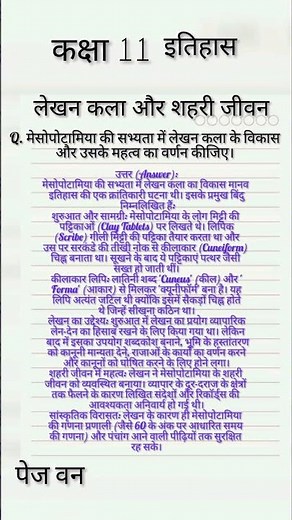 कक्षा 11 इतिहास
लेखन कला और शहरी जीवन
Q. मेसोपोटामिया की सभ्यता में लेखन कला के विकास
और उसके महत्व का वर्णन कीजिए।
उत्तर (Answer):
मेसोपोटामिया की सभ्यता में लेखन कला का विकास मानव
इतिहास की एक क्रांतिकारी घटना थी। इसके प्रमुख बिंदु
निम्नलिखित हैं:
शुरुआत और सामग्री: मेसोपोटामिया के लोग मिट्टी की
पट्टिकाओं (Clay Tablets) पर लिखते थे। लिपिक
(Scribe) गीली मिट्टी की पट्टिका तैयार करता था और
उस पर सरकंडे की तीखी नोक से कीलाकार (Cuneiform)
चिह्न बनाता था। सूखने के बाद ये पट्टिकाएं पत्थर जैसी
सख्त हो जाती थीं।
कीलाकार लिपि: लातिनी शब्द 'Cuneus' (कील) और '
Forma' (आकार) से मिलकर 'क्यूनीफॉर्म' बना है। यह
लिपि अत्यंत जटिल थी क्योंकि इसमें सैकड़ों चिह्न होते
थे जिन्हें सीखना कठिन था।
लेखन का उद्देश्य: शुरुआत में लेखन का प्रयोग व्यापारिक
लेन-देन का हिसाब रखने के लिए किया गया था। लेकिन
बाद में इसका उपयोग शब्दकोश बनाने, भूमि के हस्तांतरण
को कानूनी मान्यता देने, राजाओं के कार्यों का वर्णन करने
और कानूनों को घोषित करने के लिए होने लगा।
शहरी जीवन में महत्व: लेखन ने मेसोपोटामिया के शहरी
जीवन को व्यवस्थित बनाया। व्यापार के दूर-दराज के क्षेत्रों
तक फैलने के कारण लिखित संदेशों और रिकॉर्ड्स की
आवश्यकता अनिवार्य हो गई थी।
सांस्कृतिक विरासत: लेखन के कारण ही मेसोपोटामिया
की गणना प्रणाली (जैसे 60 के अंक पर आधारित समय
की गणना) और पंचांग आने वाली पीढ़ियों तक सुरक्षित
रह सके।
पेज वन